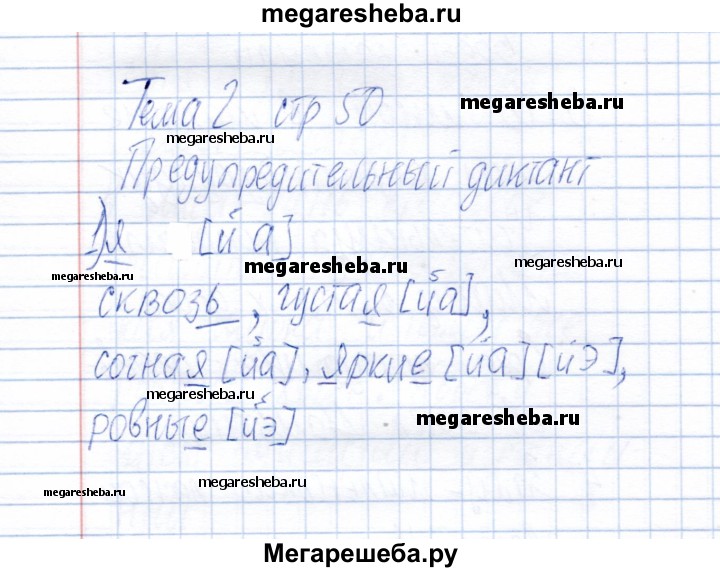 megaresheba.ru
Тема 2 стр 50
megaresheba.ru
megaresheba.ru
Предупредительный диктант
1) я [й а]
megaresheba.ru
megaresheba.ru
megaresheba.ru
сквозь, густая [йа],
сочная [йа], яркие [йа] [йэ],
megaresheba.ru
ровные [йэ]
megaresheba.ru
megaresheba.ru
megaresheba.ru
Мегарешеба.ру